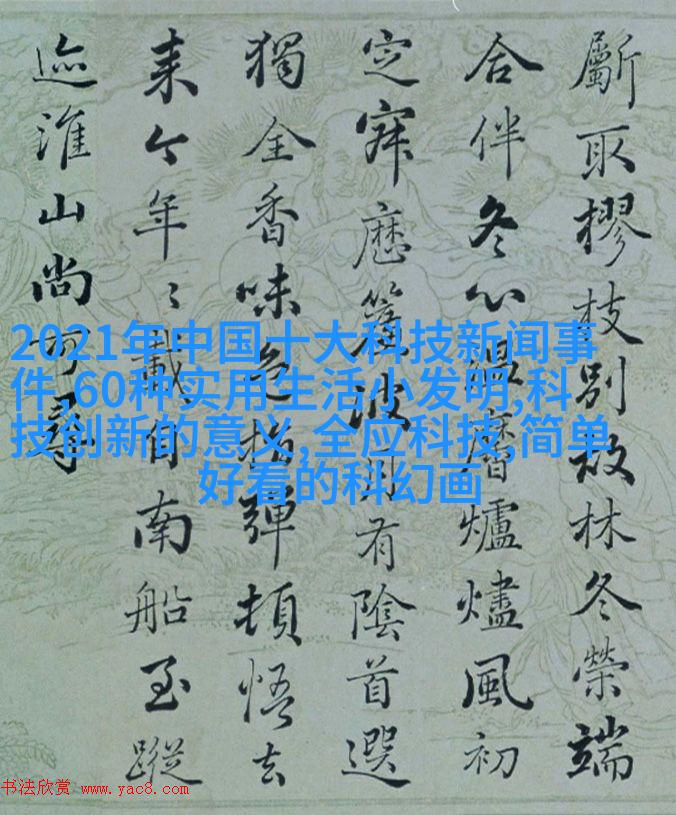 斸取樛枝別故林冬榮端
合伴冬心溫黁爐燼風初
定寂歷簾波月有陰首選
獨全香味色指彈頓悟去
来今年〻載自南船至蹤
迹淮山尚可尋
2021年中国十大科技新闻事
件,60种实用生活小发明,科
技创新的意义,全应科技,简单
好看的科幻画
书法欣赏 www.yac8.com